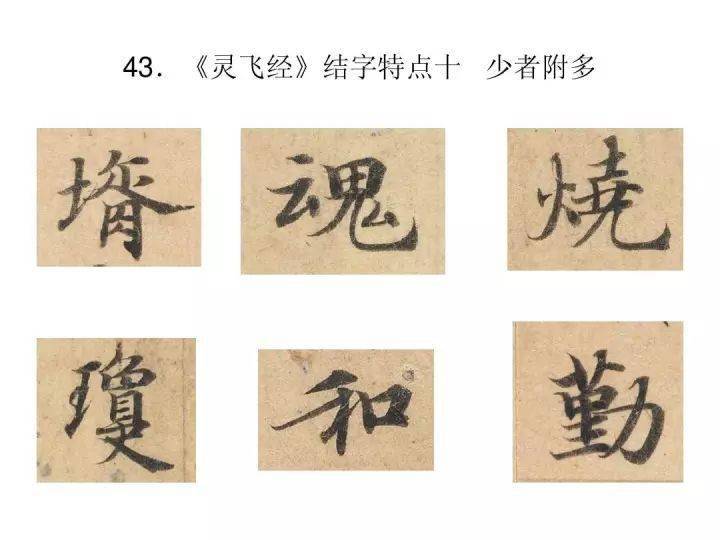 43．《灵飞经》结字特点十 少者附多
壻 魂 燒
瓊 和 勤